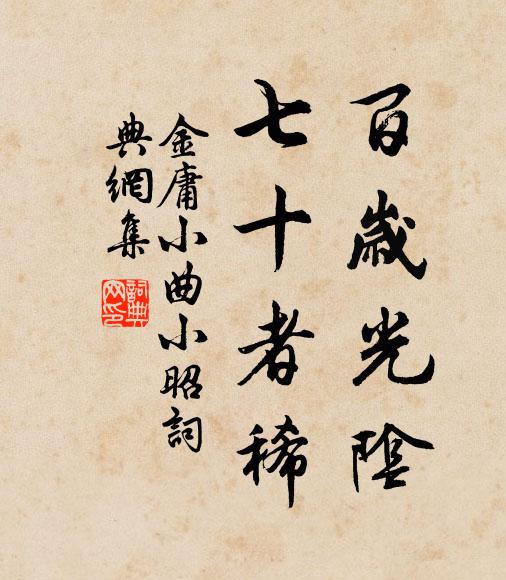 百歲光陰
七十者稀
金庸小曲小昭詞
典網集
詞典
网印